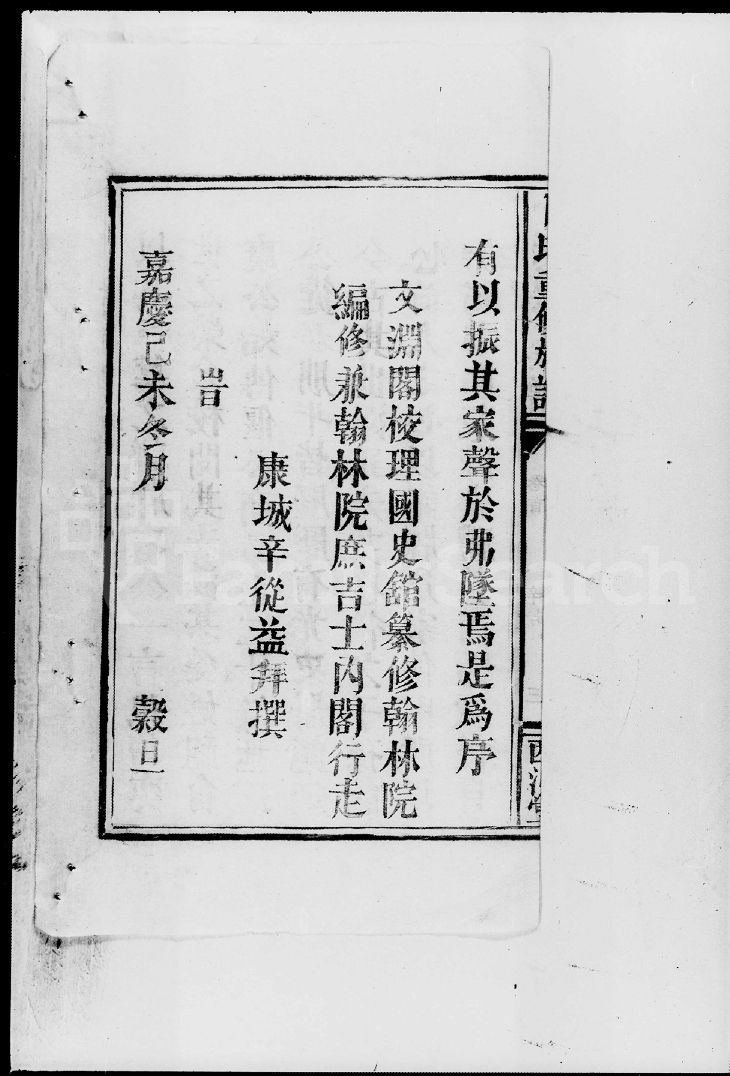 有以振其家聲於弗墜焉是為序
文淵閣校理國史館纂修翰林院
編修兼翰林院庶吉士內閣行走
康城辛從益拜撰
旹
嘉慶己未冬月 穀旦
氏重修族譜